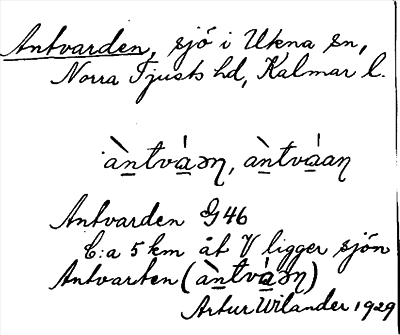 Antvarden, sjö i Ukna sn,
Norra Tjusts hd, Kalmar l.
àntváən, àntváan
Antvarden G46
C:a 5 km åt V ligger sjön
Antvarten (àntváən)
Artur Wilander 1929